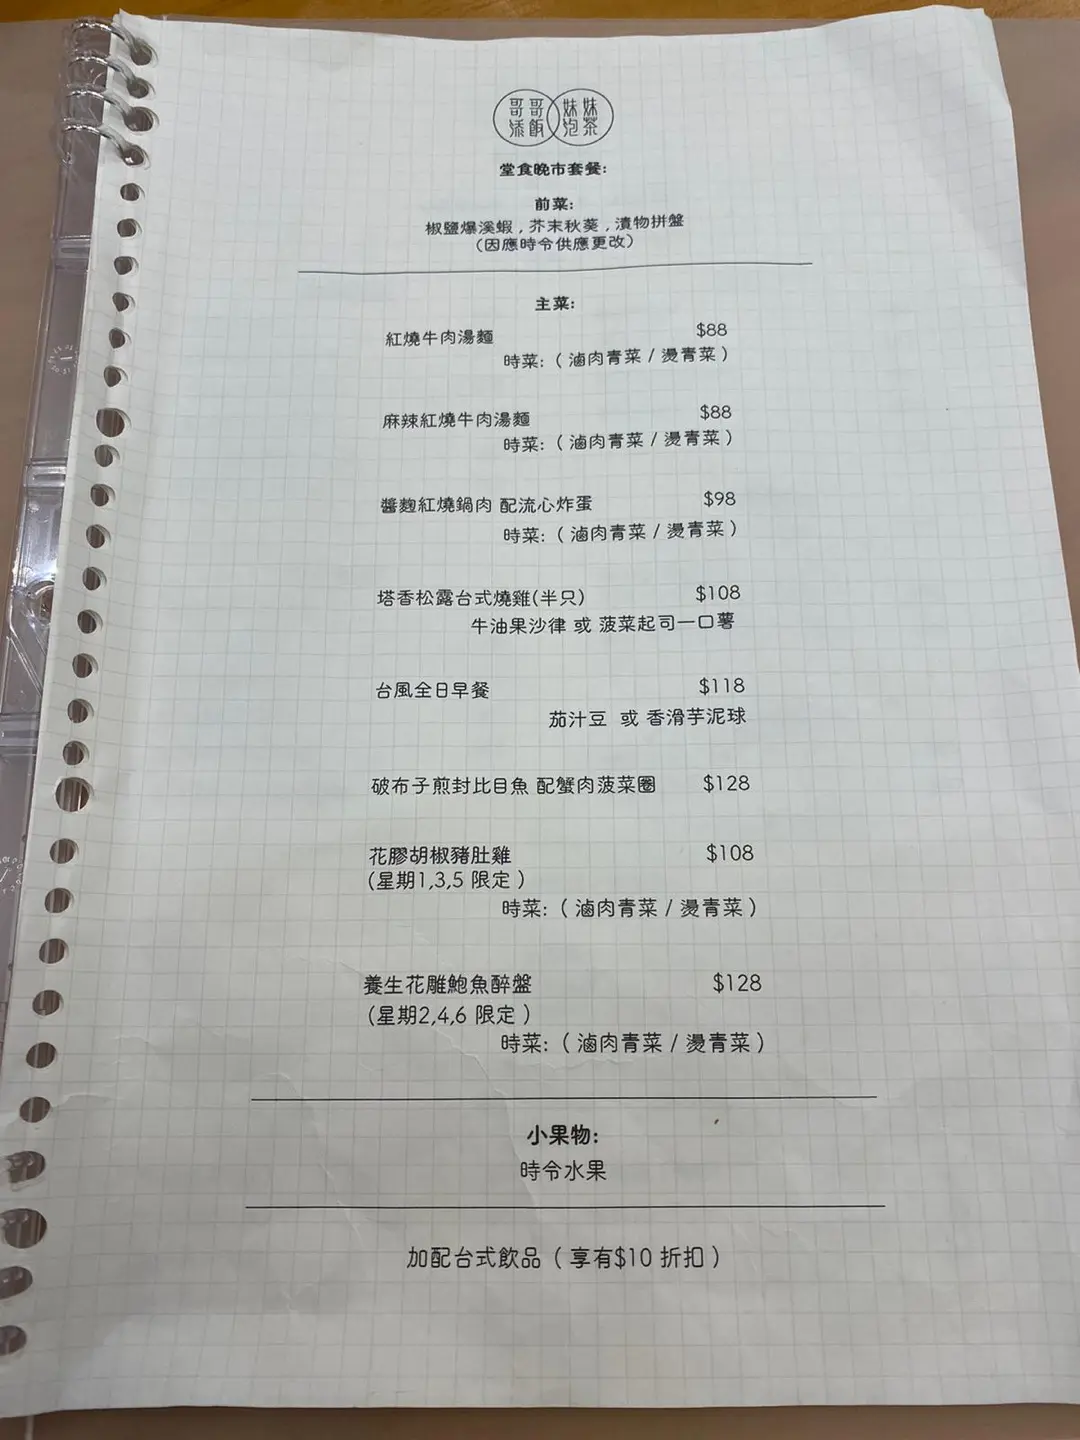 哥哥 妹妹
添飯 泡茶
堂食晚市套餐:
前菜:
椒鹽爆溪蝦 , 芥末秋葵 , 漬物拼盤
(因應時令供應更改)
主菜:
紅燒牛肉湯麵 $88
時菜: ( 滷肉青菜 / 燙青菜 )
麻辣紅燒牛肉湯麵 $88
時菜: ( 滷肉青菜 / 燙青菜 )
醬麴紅燒鍋肉 配流心炸蛋 $98
時菜: ( 滷肉青菜 / 燙青菜 )
塔香松露台式燒雞(半只) $108
牛油果沙律 或 菠菜起司一口薯
台風全日早餐 $118
茄汁豆 或 香滑芋泥球
破布子煎封比目魚 配蟹肉菠菜圈 $128
花膠胡椒豬肚雞 $108
(星期1,3,5 限定 )
時菜: ( 滷肉青菜 / 燙青菜 )
養生花雕鮑魚醉盤 $128
(星期2,4,6 限定 )
時菜: ( 滷肉青菜 / 燙青菜 )
小果物:
時令水果
加配台式飲品 ( 享有$10 折扣 )